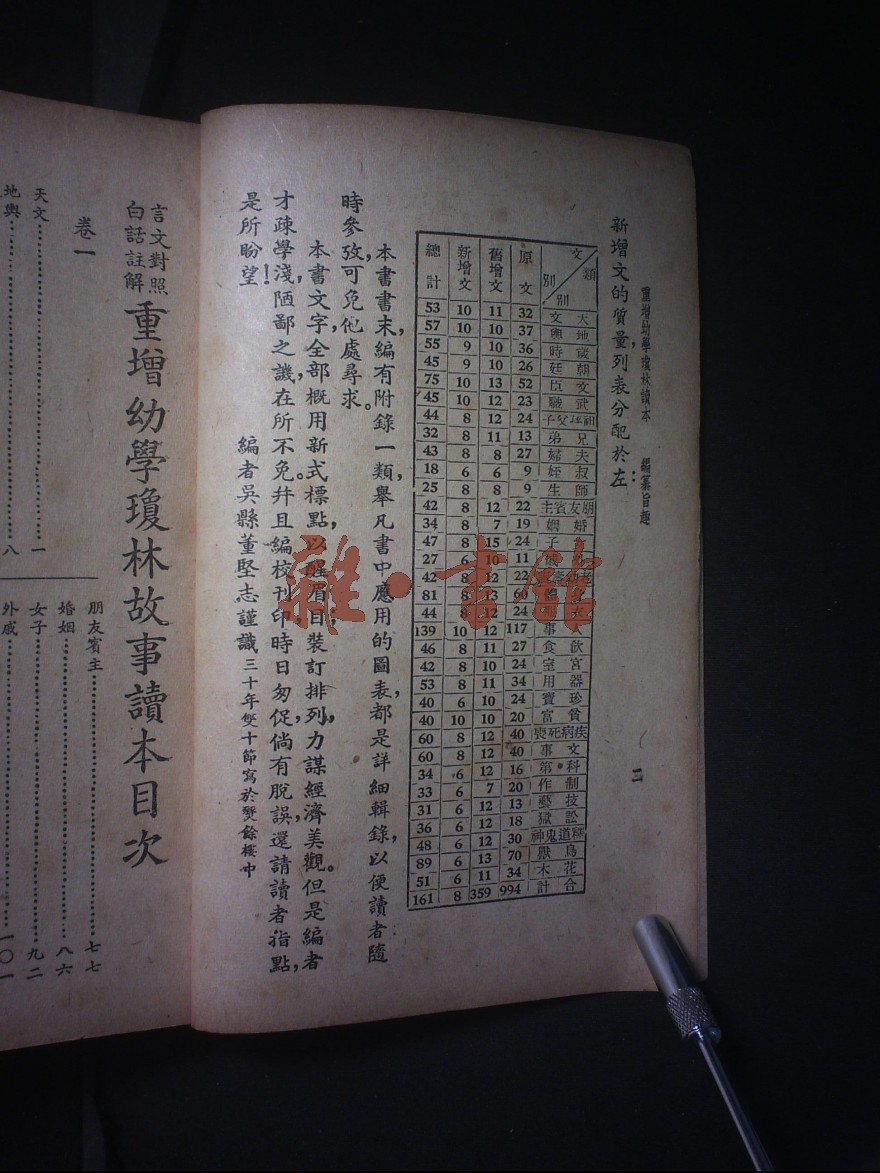 重增幼學瓊林讀本 編纂旨趣 二
新增文的質量,列表分配於左:
文類別別 原文 舊增文 新增文 總計
天文 32 11 10 53
地輿 37 10 10 57
歲時 36 10 9 55
朝廷 26 10 9 45
文臣 52 13 10 75
武職 23 12 10 45
祖孫父子 24 12 8 44
兄弟 13 11 8 32
夫婦 27 8 8 43
叔姪 9 6 6 18
師生 9 8 8 25
朋友賓主 22 12 8 42
婚姻 19 7 8 34
女子 24 15 8 47
戚 11 10 6 27
22 12 8 42
60 13 8 81
衣 24 12 8 44
人事 117 12 10 139
飲食 27 11 8 46
宮室 24 10 8 42
器用 34 11 8 53
珍寶 24 10 6 40
貧富 20 10 10 40
疾病死喪 40 12 8 60
文事 40 12 8 60
科第 16 12 6 34
制作 20 7 6 33
技藝 13 12 6 31
訟獄 18 12 6 36
釋道鬼神 30 12 6 48
鳥獸 70 13 6 89
花木 34 11 6 51
合計 994 359 8 161
本書書末,編有附錄一類,舉凡書中應用的圖表,都是詳細輯錄,以便讀者隨
時參攷,可免他處尋求。
本書文字,全部概用新式標點,以醒眉目,裝訂排列,力謀經濟美觀。但是編者
才疎學淺,陋鄙之譏,在所不免,幷且編校刊印,時日匆促,倘有脫誤,還請讀者指點,
是所盼望!
編者吳縣董堅志謹識 三十年雙十節寫於爨餘樓中
言文對照
白話註解
重增幼學瓊林故事讀本目次
卷一
天文 一
地輿 八
朋友賓主 七七
婚姻 八六
女子 九二
外戚 一〇一
雜·書館